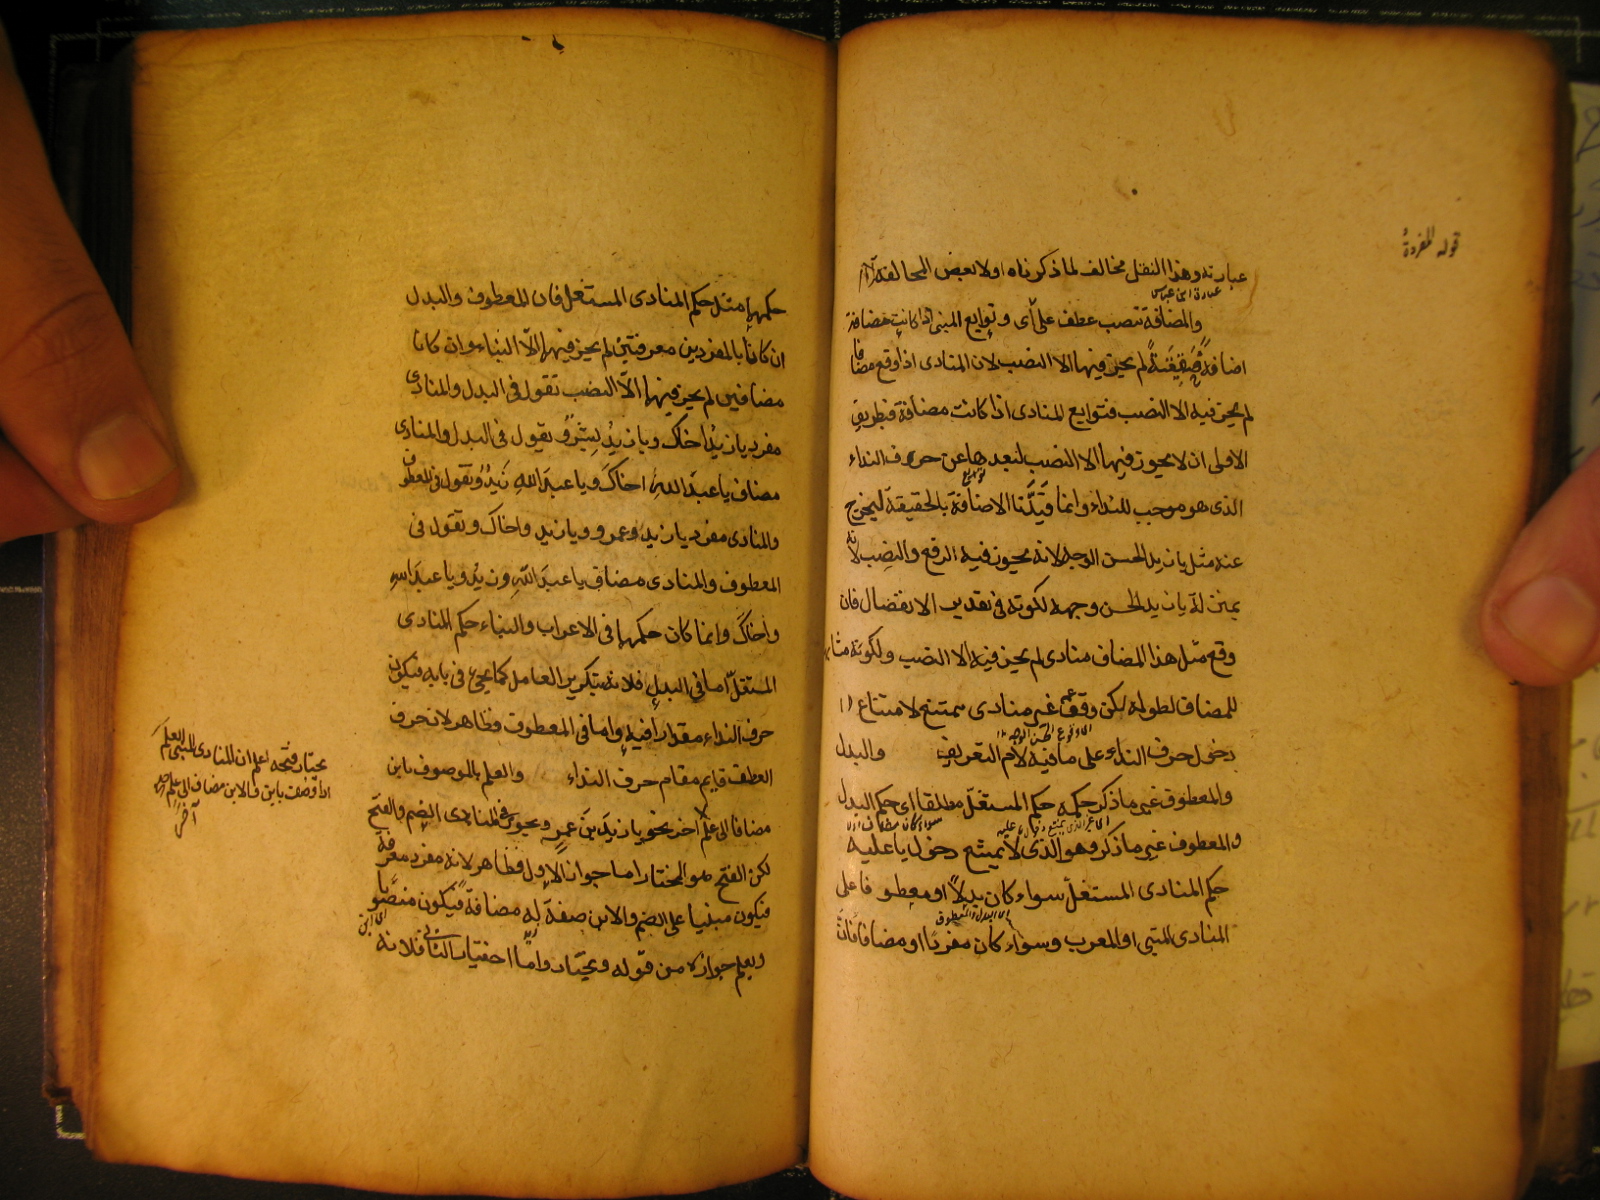 قوله المفردة
عبارته وهذا النقل مخالف لما ذكرناه اولا لبعض المخالفة
عبارة ابن عباس
والمضافة تنصب عطف على أى وتوابع المبنى اذا كانت مضافة
اضافة حقيقية لم يجز فيها الا النصب لان المنادى اذا وقع مضافا
لم يجز فيه الا النصب فتوابع المنادى اذا كانت مضافة فبطريق
الاولى ان لا يجوز فيها الا النصب لبعدها عن حرف النداء
توابع
الذى هو موجب للبناء وانما قيّدنا الاضافة بالحقيقة ليخرج
عنه مثل يا زيد الحسن الوجه لانه يجوز فيه الرفع والنصب لانه
بمنزلة يا زيد الحسن وجهه لكونه فى تقدير الانفصال فان
وقع مثل هذا المضاف منادى لم يجز فيه الا النصب ولكونه
للمضاف لطوله لكن وقوعه غير منادى ممتنع لامتناع
اى وقوع الحسن الوجه
دخول حرف النداء على ما فيه لام التعريف والبدل
والمعطوف غير ما ذكر حكمه حكم المستقل مطلقا اى حكم البدل
والمعطوف غير ما ذكر وهو الذى لا يمتنع دخول يا عليه
حكم المنادى المستقل سواء كان بدلا او معطوفا على
اى البدل والمعطوف
المنادى المبنى او المعرب وسواء كان مفردا او مضافا فان
حكمهما مثل حكم المنادى المستقل فان المعطوف والبدل
ان كانا بالمفردين معرفتين لم يجز فيهما الّا البناء وان كانا
مضافين لم يجز فيهما الّا النصب تقول فى البدل والمنادى
مفرد يا زيدُ اخاك ويا زيدُ بشرُ وتقول فى البدل والمنادى
مضاف يا عبدَ اللهِ اخاكَ ويا عبدَ اللهِ زيدُ وتقول فى المعطوف
والمنادى مفرد يا زيد وعمرو ويا زيد واخاك وتقول فى
المعطوف والمنادى مضاف يا عبدَ اللهِ وزيدُ ويا عبدَ اللهِ
واخاكَ وانما كان حكمهما فى الاعراب والبناء حكم المنادى
المستقلّ اما فى البدل فلانه بتكرير العامل كما يجئ فى بابه فيكون
حرف النداء مقدرا فيه واما فى المعطوف فظاهر لان حرف
العطف قايم مقام حرف النداء والعلم الموصوف بابن
مضافا الى علم اخر نحو يا زيدَ بنَ عمرٍو يجوز فى المنادى الضم والفتح
لكن الفتح هو المختار اما جواز الاول فظاهر لانه مفرد معرفة
فيكون مبنيا على الضم والابن صفة له مضافة فيكون منصوبا
اى ابن
ويعلم جوازه من قوله ويختار واما اختيار الثانى فلانه
يختار فتحه اعلم ان المنادى المبنى العلم
اذا وصف بابن والابن مضاف الى علم
آخر